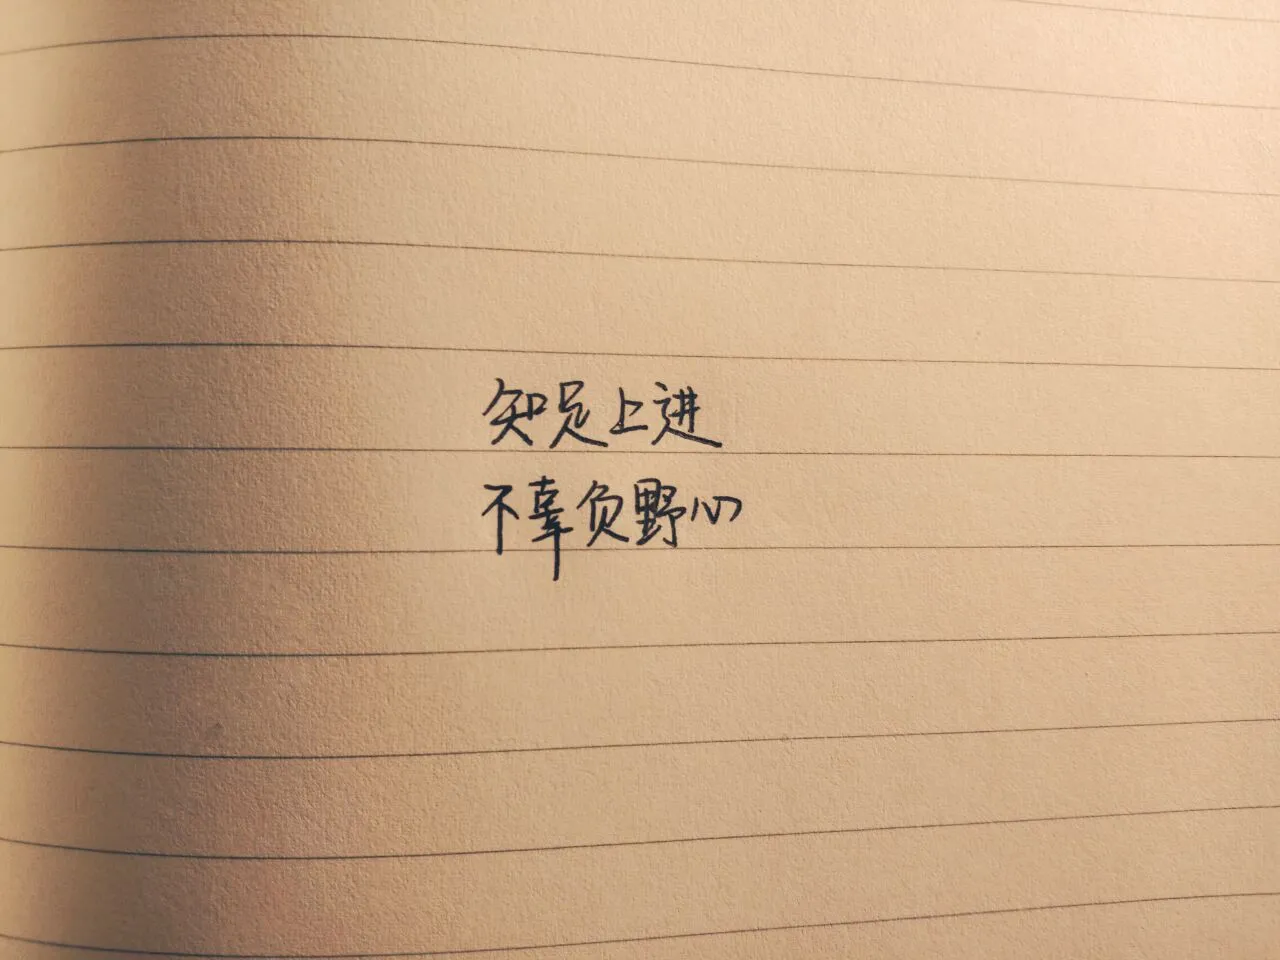 知足上进
不辜负野心